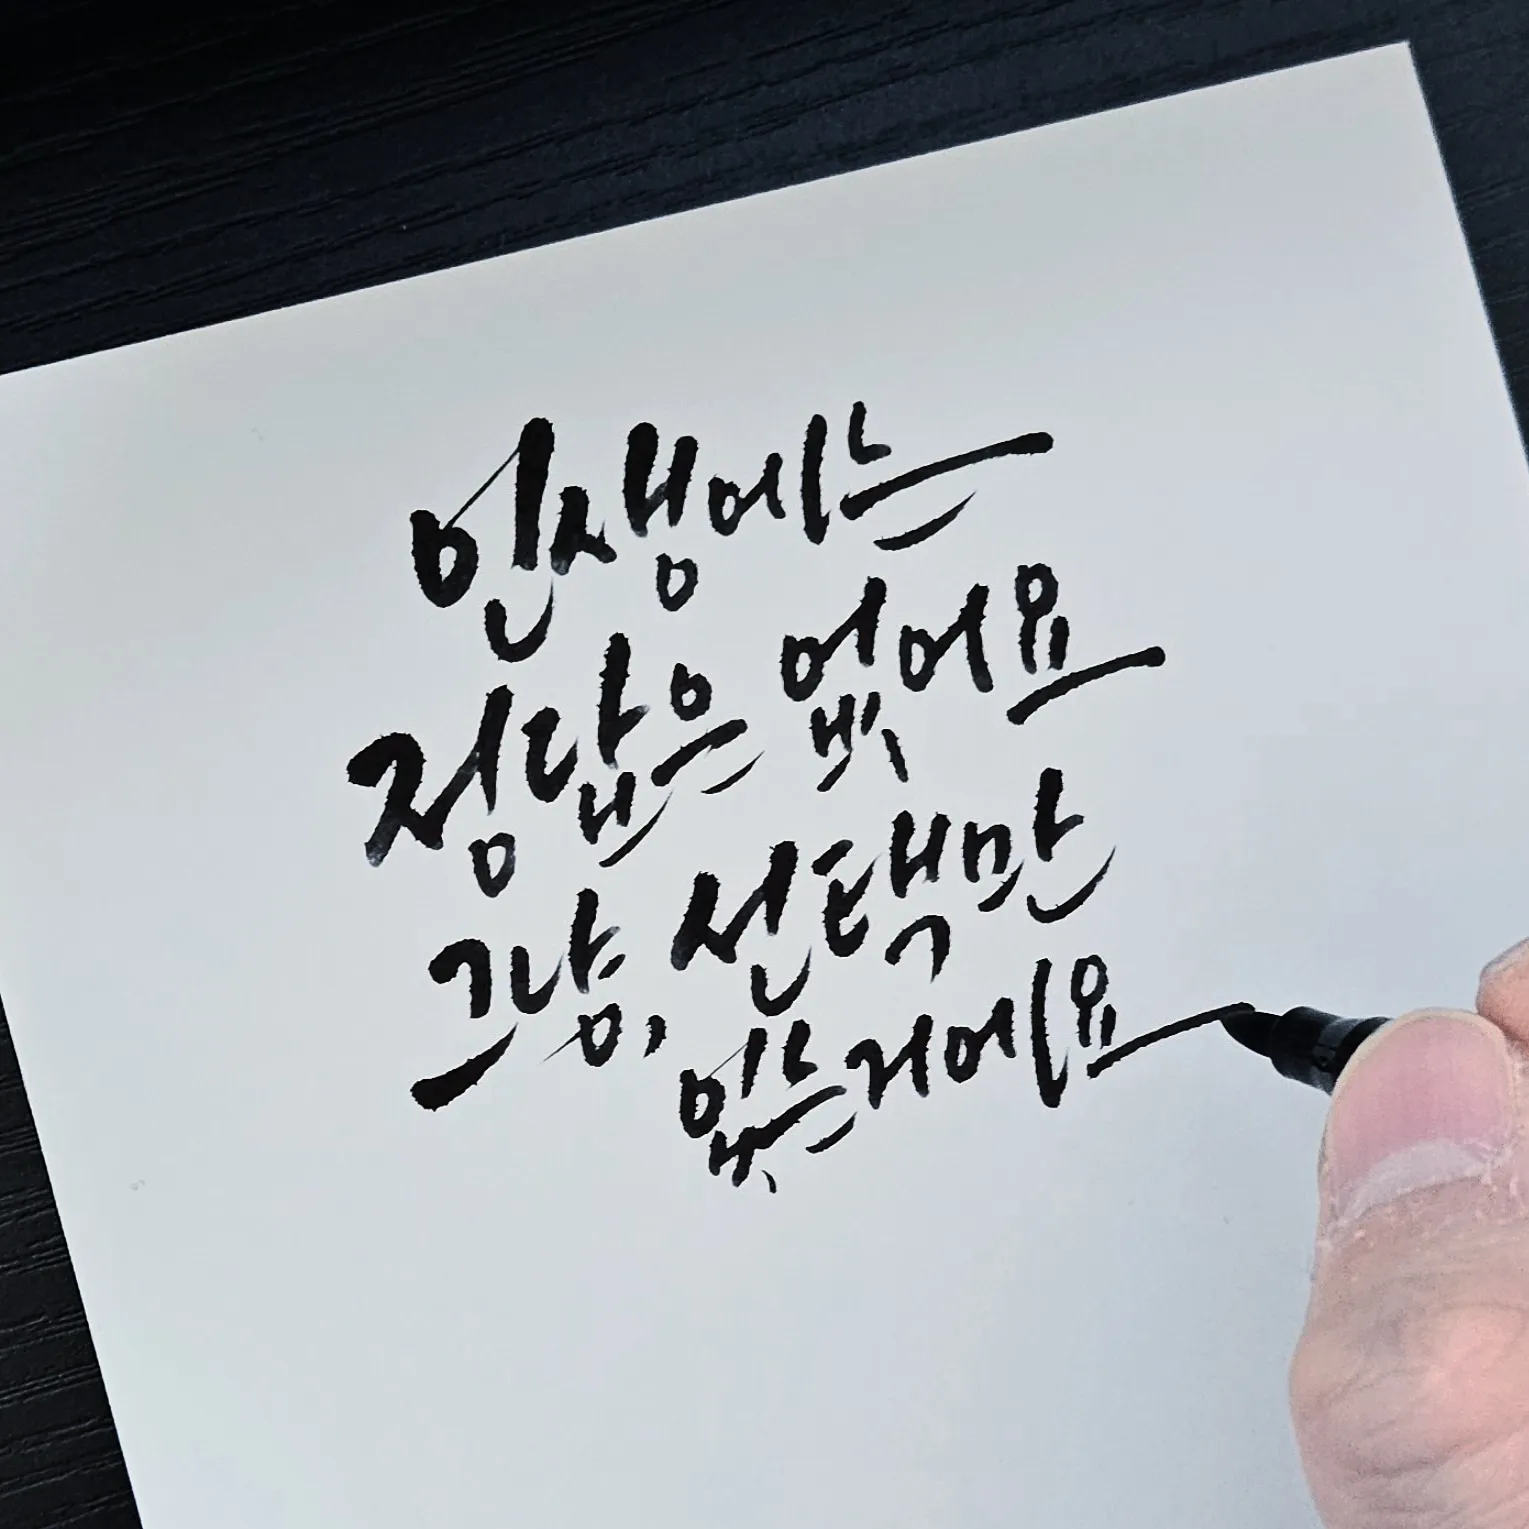 인생에는
정답은 없어요
그냥, 선택만
있는거에요